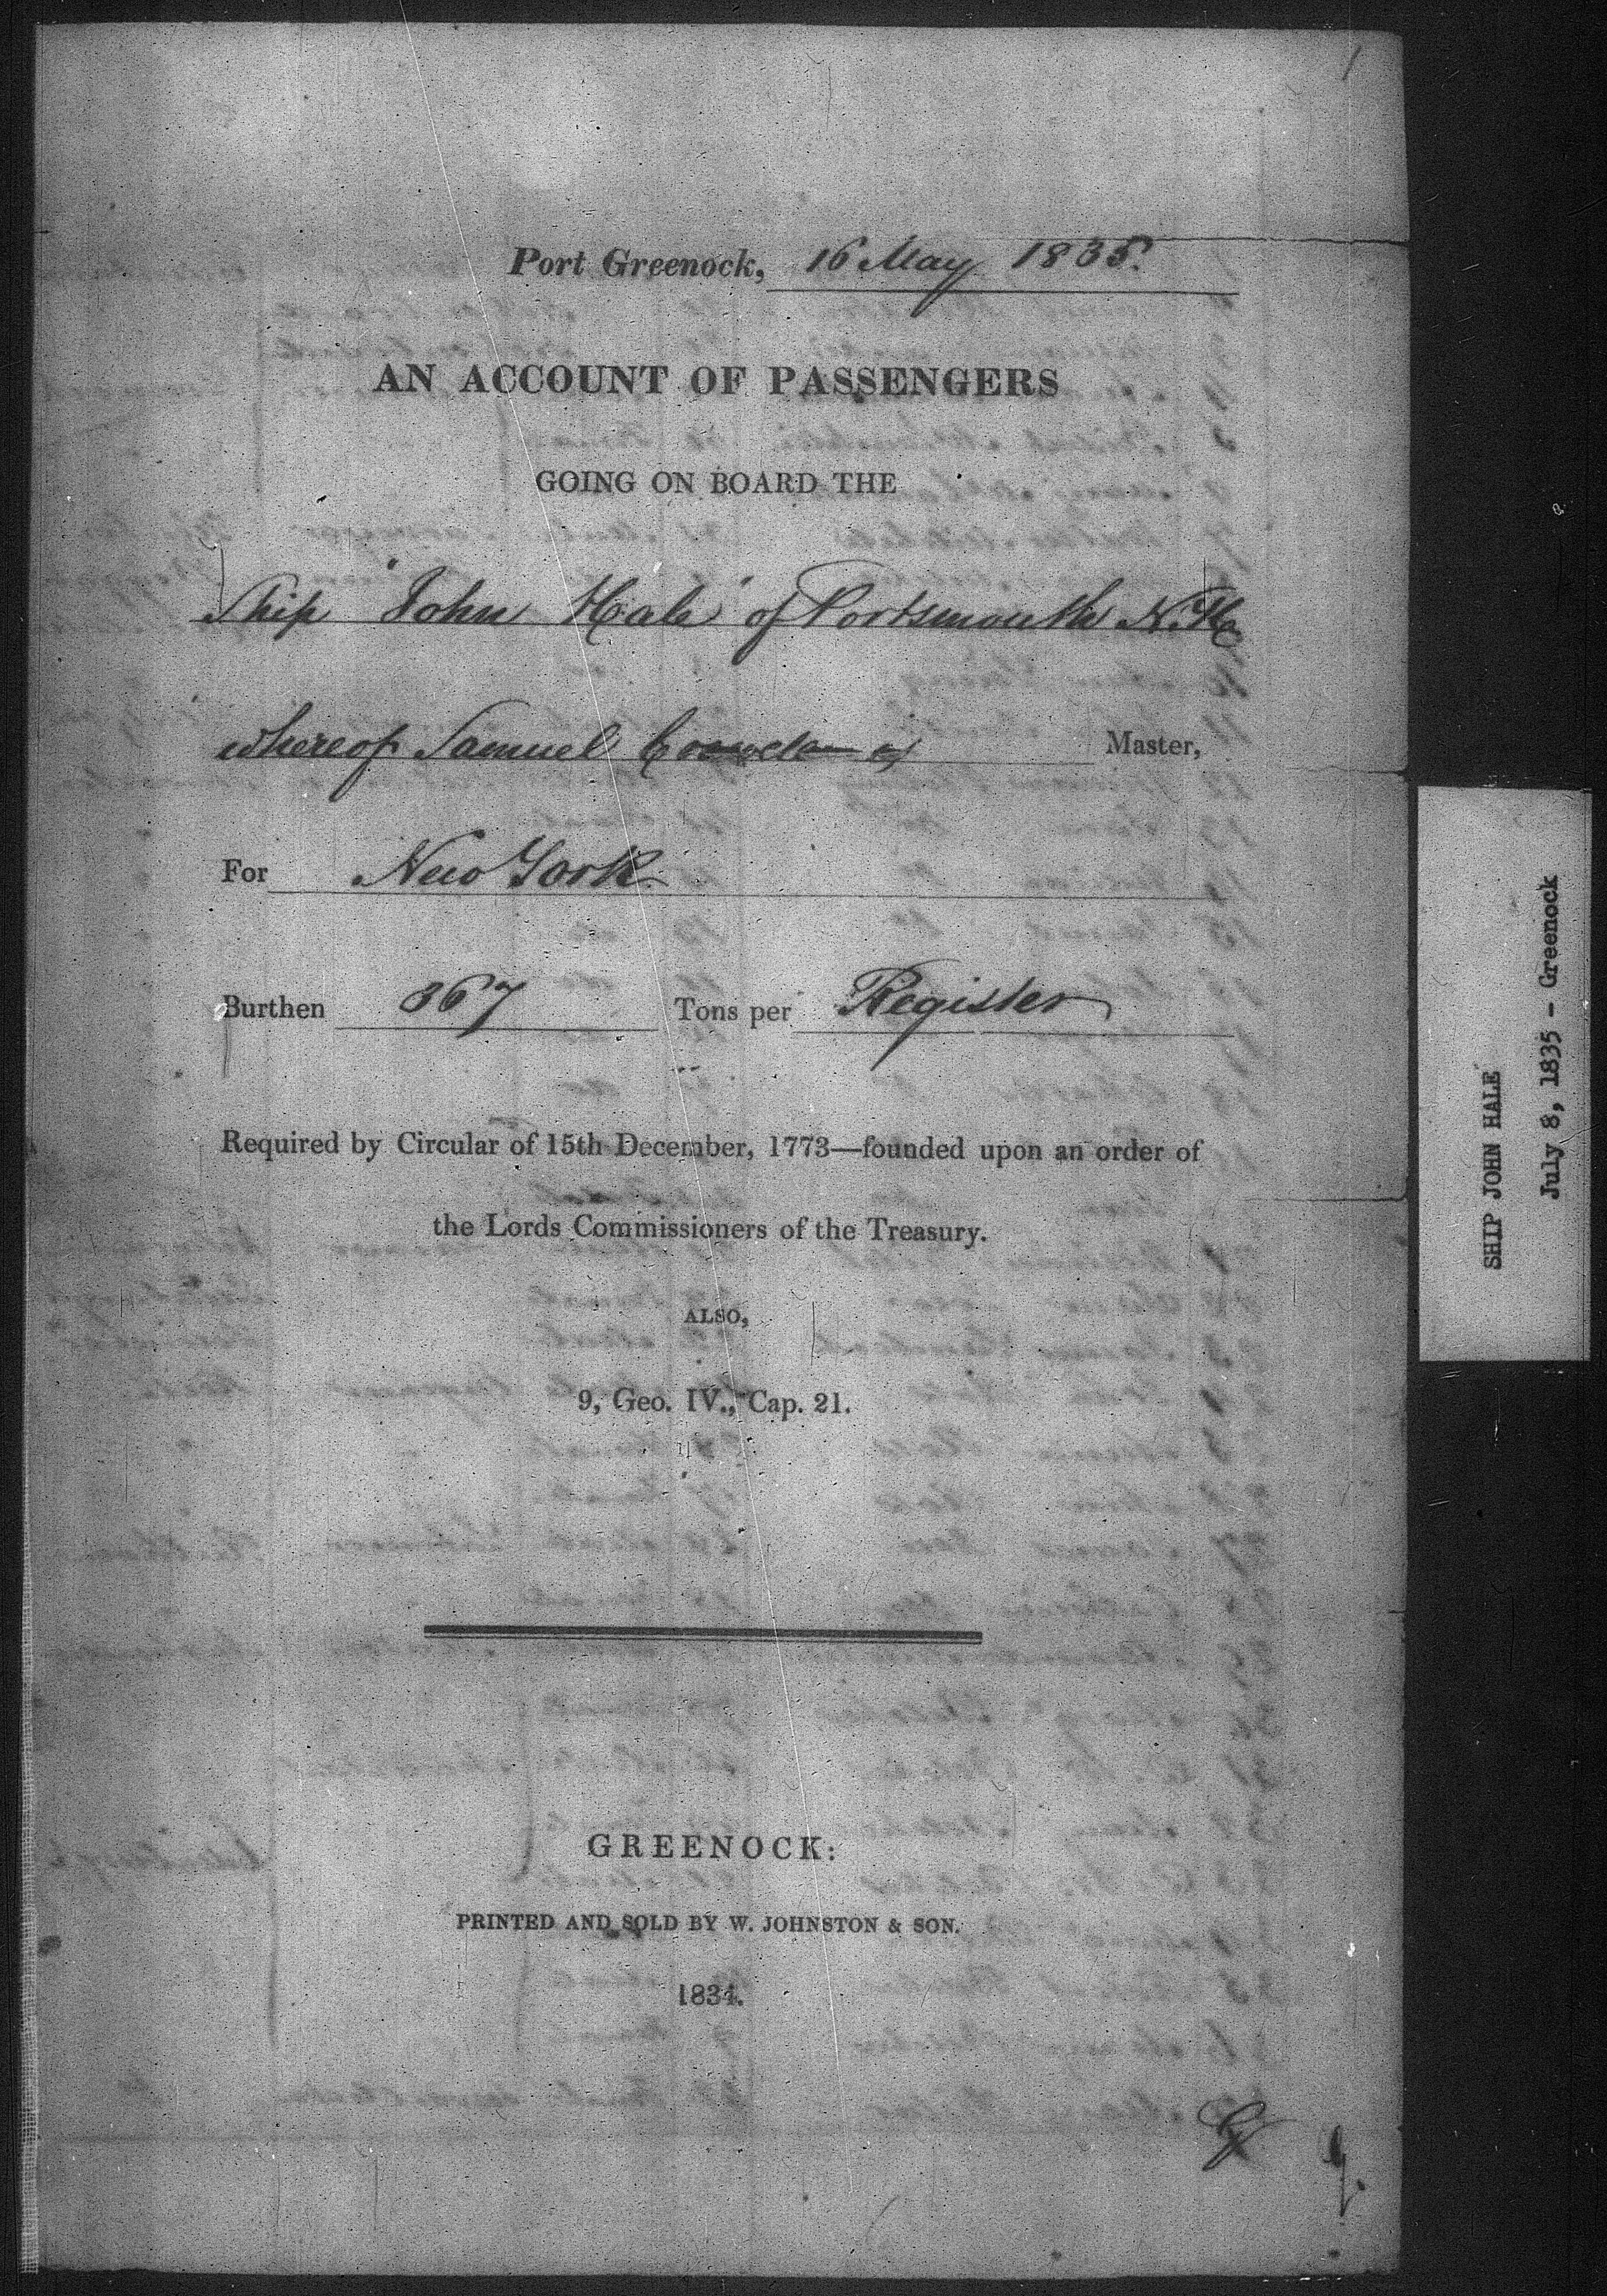 Port Greenock, 16 May 1835.
AN ACCOUNT OF PASSENGERS
GOING ON BOARD THE
Ship "John Hale" of Portsmouth N.H.
whereof Samuel Master,
For New York
Burthen 367 Tons per Register
Required by Circular of 15th December, 1773—founded upon an order of
the Lords Commissioners of the Treasury.
ALSO,
9, Geo. IV., Cap. 21.
GREENOCK:
PRINTED AND SOLD BY W. JOHNSTON & SON.
1834.
SHIP JOHN HALE
July 8, 1835 - Greenock